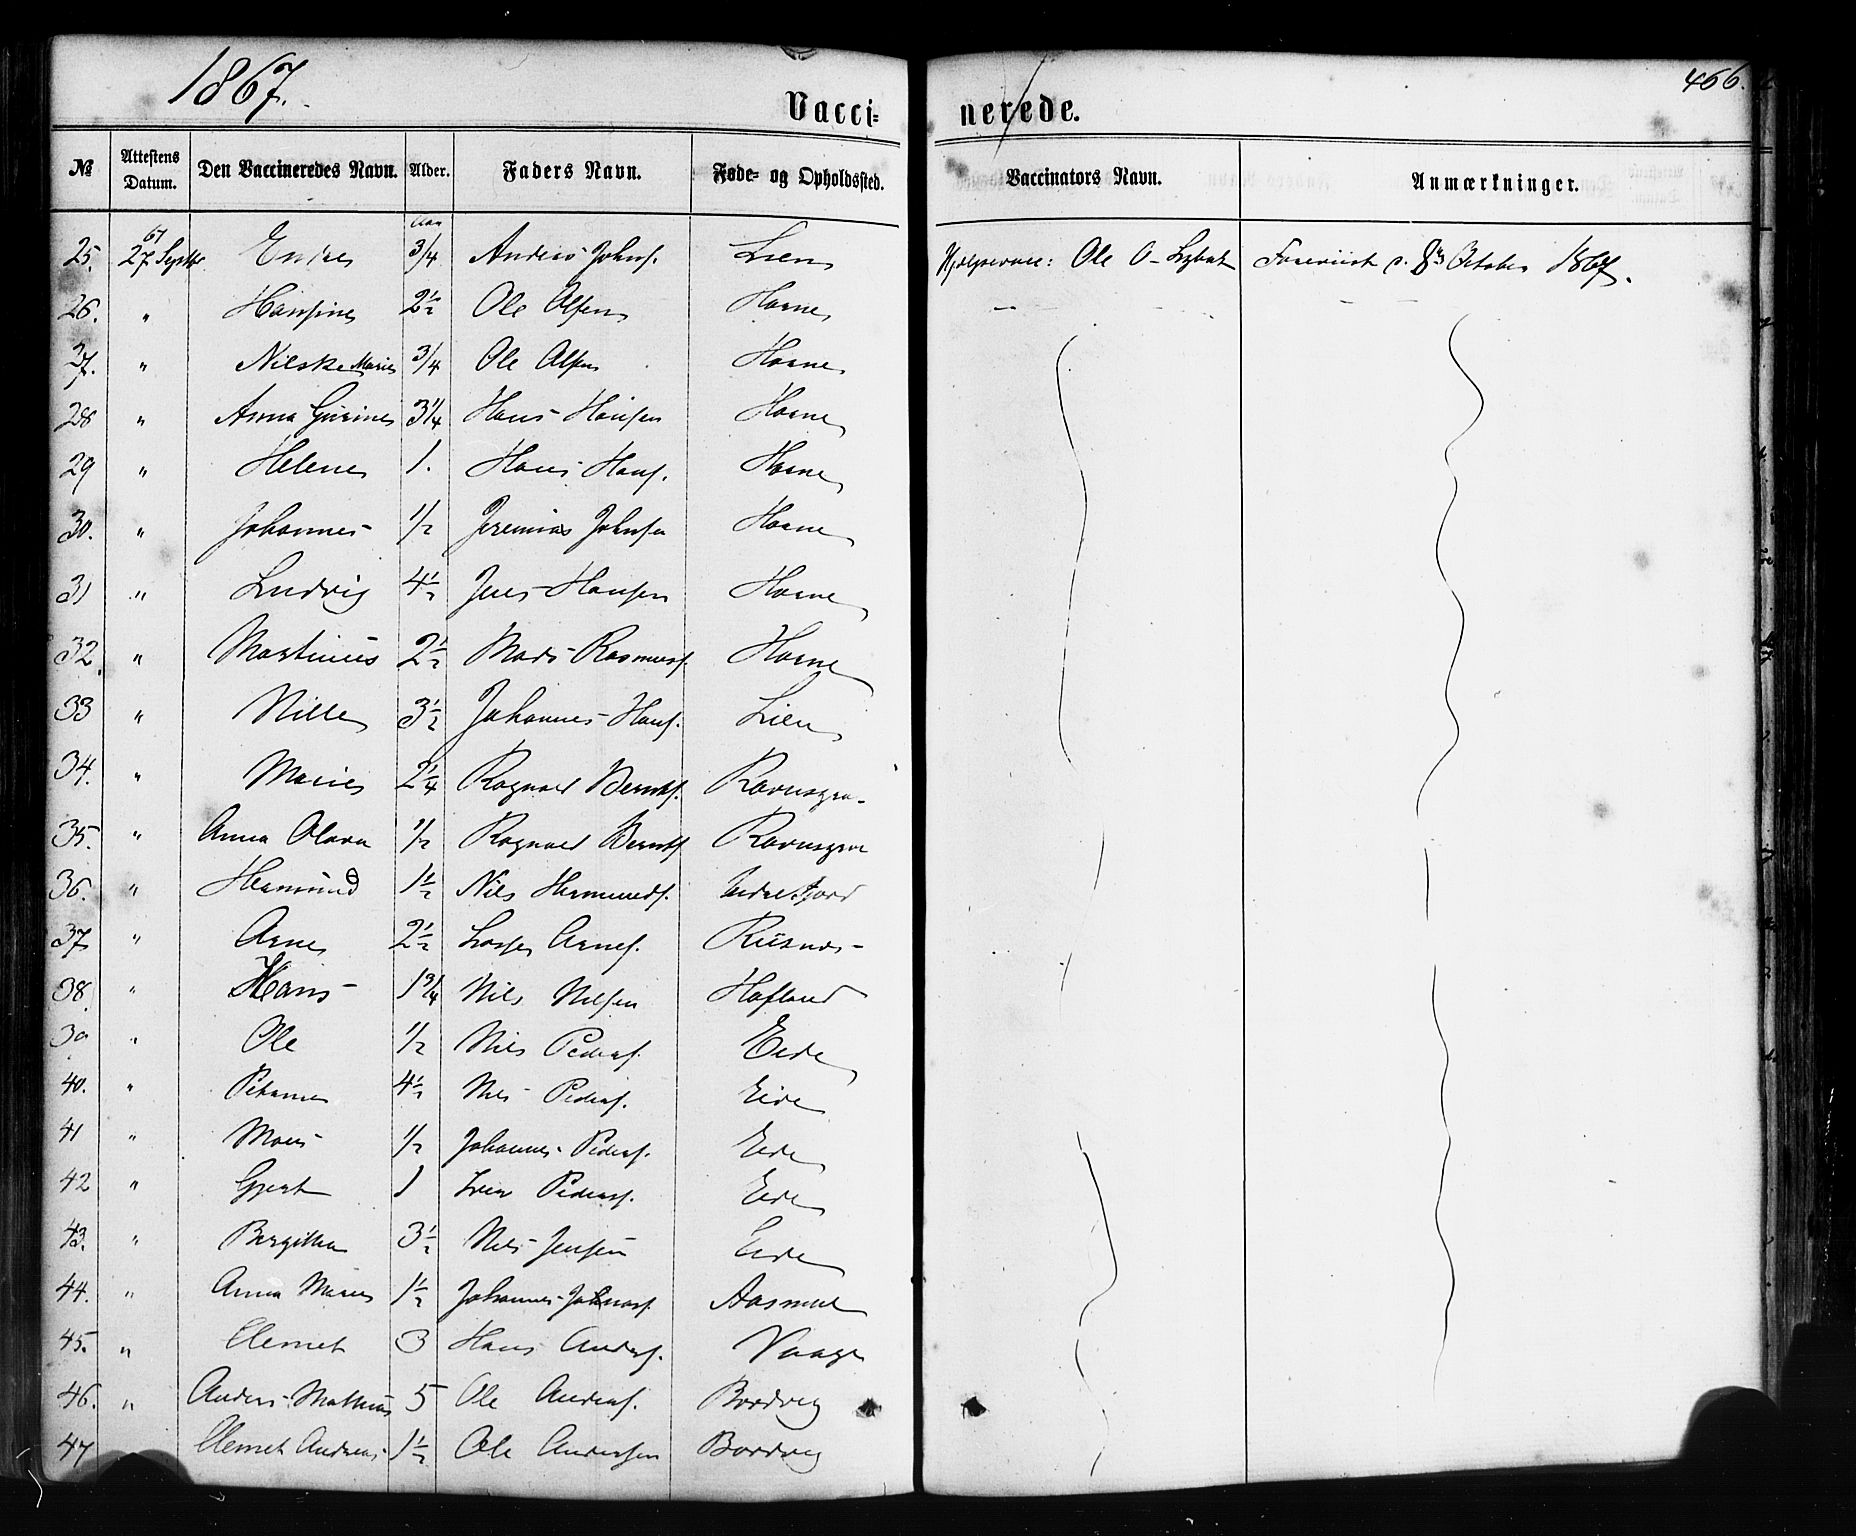 1867.
466.
Vacci= nerede.
№ Attestens Datum. Den Vaccineredes Navn. Alder. Faders Navn. Føde- og Opholdssted. Vaccinators Navn. Anmærkninger.
Aar
67
25. 27 Septbr. Endre 3/4 Anders Johns. Lien Ole O. October 1867.
26. " Hansine 2½ Ole Olsen Horne
27. " Nilske Marie 3/4 Ole Olsen Horne
28 " Anna Gurine 3¼ Hans Hansen Horne
29 " Helene 1. Hans Hans. Horne
30. " Johannes 1/2 Jeremias Johnsen Horne
31 " Ludvig 4½ Jens Hansen Horne
32. " Martinus 2½ Mads Rasmuss. Horne
33 " Nille 3½ Johannes Hans. Lien
34. " Marie 2¼ Ragnald Bernts.
35. " Anna Olava 1/2 Ragnald Bernts.
36. " Hermund 1½ Nils Hermunds. Indrefjord
37 " Arne 2½ Lasse Arnes. Riisnes
38. " Hans 1¾ Nils Nilsen Hafland
39 " Ole 1/2 Nils Peders. Eide
40. " 4½ Nils Peders. Eide
41 " Mons 1/2 Johannes Peders. Eide
42 " Gjert 1 Iver Peders. Eide
43. " Bergitha 3½ Nils Jensen Eide
44. " Anna Marie 1½ Johannes Aasmul
45. " Clemet 3 Hans Anders. Vaage
46. " Anders Mathias 5 Ole Anders. Bordvig
47 Clemet Andreas 1½ Ole Andersen Bordvig